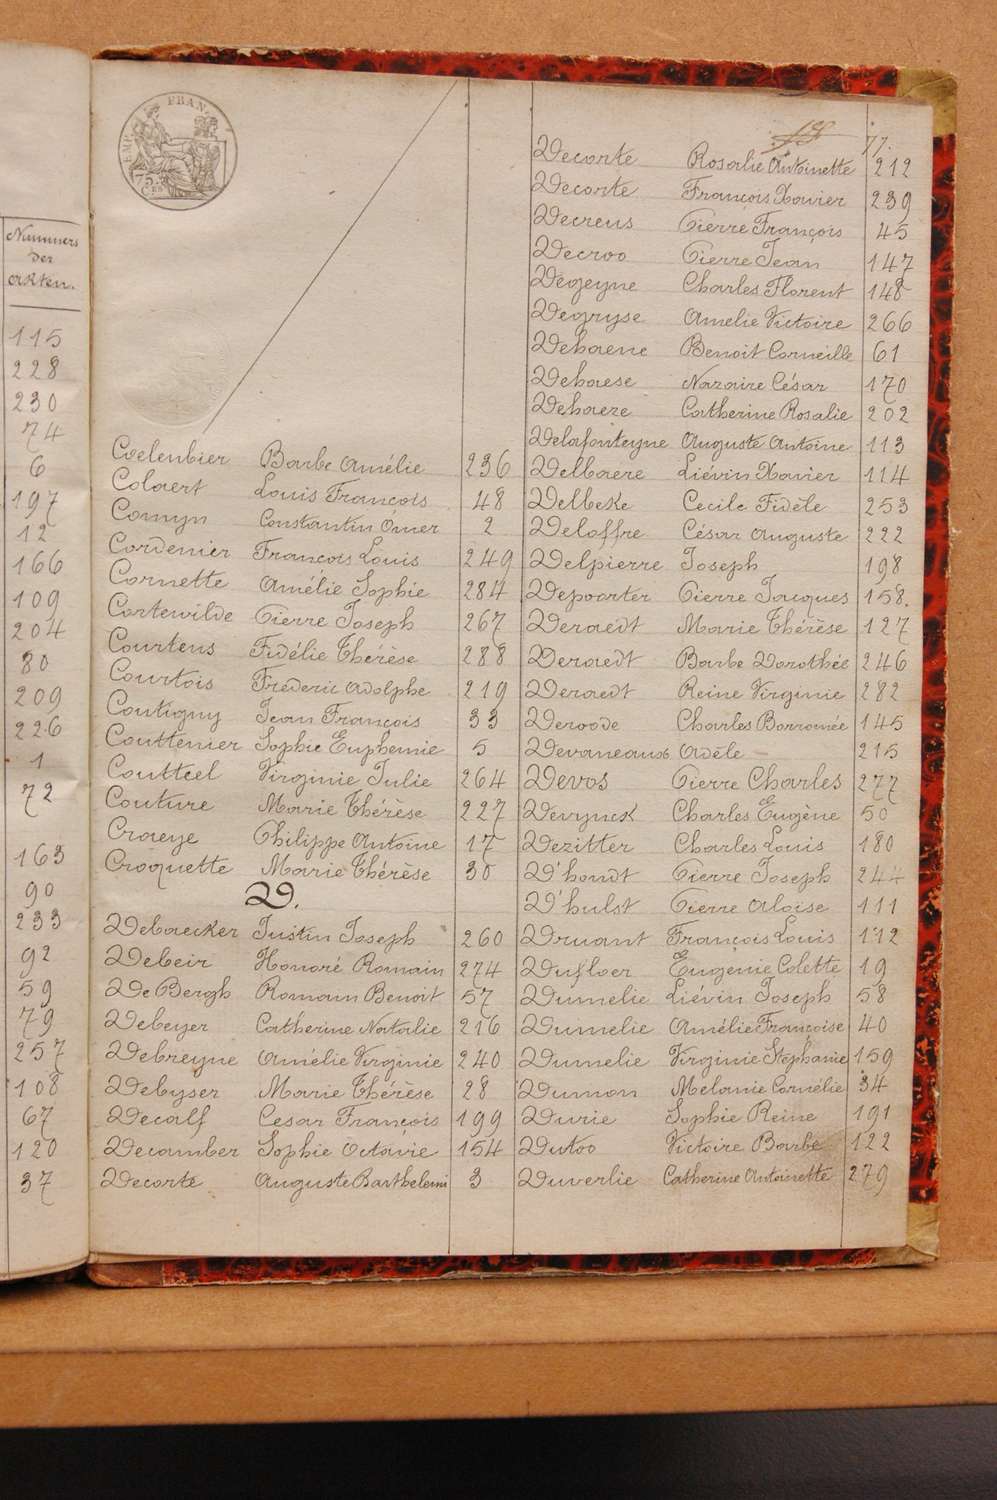 Nummers
der
akten.
115
228
230
74
6
197
12
166
109
204
80
209
226
1
72
163
90
233
92
59
79
257
108
67
120
37
77.
Coelenbier Barbe Amélie 236
Colaert Louis François 48
Comyn Constantin Omer 2
Cordenier François Louis 249
Cornette Amélie Sophie 284
Cortewilde Pierre Joseph 267
Courtens Fidélie Thérèse 288
Courtois Fréderic Adolphe 219
Coutigny Jean François 33
Couttenier Sophie Euphemie 5
Coutteel Virginie Julie 264
Couture Marie Thérèse 227
Craeye Philippe Antoine 17
Croquette Marie Thérèse 30
D.
Debaecker Justin Joseph 260
Debeir Honoré Romain 274
De Bergh Romain Benoit 57
Debeyer Catherine Natalie 216
Debreyne Amélie Virginie 240
Debyser Marie Thérèse 28
Decalf Cesar François 199
Decamber Sophie Octavie 154
Decorte Auguste Barthelemi 3
Decorte Rosalie Antoinette 212
Decorte François Xavier 239
Decreus Pierre François 45
Decroo Pierre Jean 147
Degeyne Charles Florent 148
Degryse Amelie Victoire 266
Dehaene Benoit Corneille 61
Dehaese Nazaire César 170
Dehaere Catherine Rosalie 202
Delafonteyne Auguste Antoine 113
Delbaere Liévin Xavier 114
Delbeke Cecile Fidèle 253
Deloffre César Auguste 222
Delpierre Joseph 198
Depoorter Pierre Jacques 158.
Deraedt Marie Thérèse 127
Deraedt Barbe Dorothée 246
Deraedt Reine Virginie 282
Deroode Charles Borromée 145
Devaneaux Adèle 215
Devos Pierre Charles 277
Devynck Charles Eugène 50
Dezitter Charles Louis 180
D'hondt Pierre Joseph 244
D'hulst Pierre Aloise 111
Druant François Louis 112
Dufloer Eugenie Colette 19
Dumelie Liévin Joseph 58
Dumelie Amélie Françoise 40
Dumelie Virginie Stéphanie 159
Dumon Melanie Cornélie 34
Durie Sophie Reine 191
Dutoo Victoire Barbe 122
Duverlie Catherine Antoinette 279